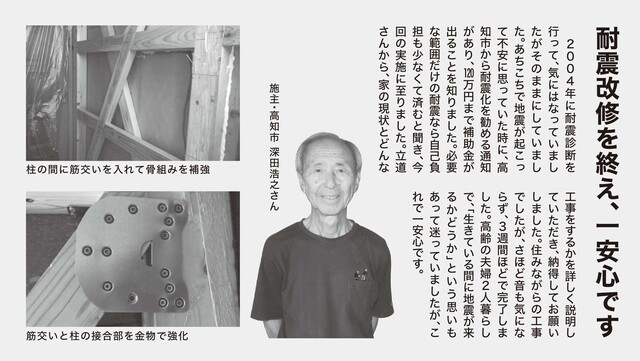 耐震改修を終え、一安心です
２００４年に耐震診断を
行って、気にはなっていまし
たがそのままにしていまし
た。あちこちで地震が起こっ
て不安に思っていた時に、高
知市から耐震化を勧める通知
があり、120万円まで補助金が
出ることを知りました。必要
な範囲だけの耐震なら自己負
担も少なくて済むと聞き、今
回の実施に至りました。立道
さんから、家の現状とどんな
工事をするかを詳しく説明し
ていただき、納得してお願い
しました。住みながらの工事
でしたが、さほど音も気にな
らず、３週間ほどで完了しま
した。高齢の夫婦２人暮らし
で、「生きている間に地震が来
るかどうか」という思いも
あって迷っていましたが、こ
れで一安心です。
施主・高知市 深田浩之さん
柱の間に筋交いを入れて骨組みを補強
筋交いと柱の接合部を金物で強化